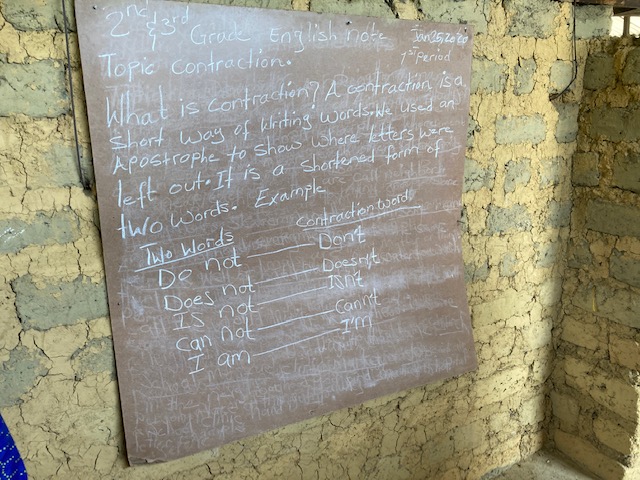 2nd & 3rd Grade English note Jan 15, 2020
Topic Contraction. 1st Period
What is contraction? A contraction is a
short way of writing words. We used an
Apostrophe to show where letters were
left out. It is a shortened form of
two words. Example
Two Words contraction word
Do not Don't
Does not Doesn't
Is not Isn't
can not Cann't
I am I'm